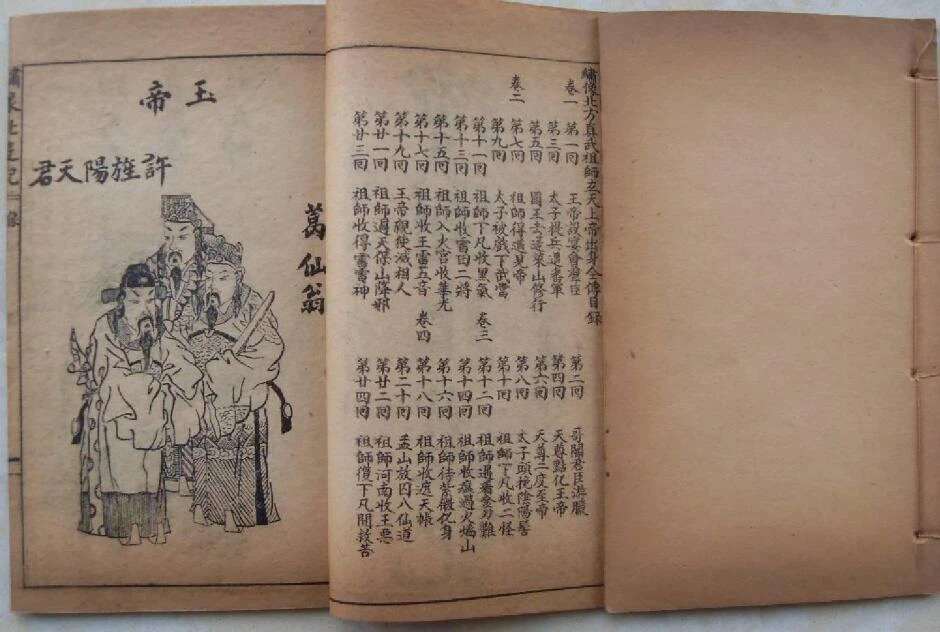 繡像北方真武祖師玄天上帝出身全傳目錄
卷一
第一回 玉帝設宴會羣臣
第二回 哥閣君臣遊獵
第三回 太子提兵退番軍
第四回 天尊點化王帝
第五回 國王去蓬萊山修行
第六回 天尊二度至帝
卷二
第七回 祖師得道見帝
第八回 太子頭挽陰陽髻
第九回 太子被戲下武當
第十回 祖師下凡收二怪
第十一回 祖師下凡收黑氣
卷三
第十二回 祖師遇難
第十三回 祖師收雷田二將
第十四回 祖師收瘟過火焰山
第十五回 祖師入火宮收華光
第十六回 祖師待紫微化身
第十七回 祖師收王雷五音
卷四
第十八回 祖師收遮天帳
第十九回 王帝觀使滅相人
第二十回 孟山放囚入仙道
第廿一回 祖師過天保山降邪
第廿二回 祖師河南收王惡
第廿三回 祖師收得雷神
第廿四回 祖師復下凡間救苦
玉帝
許旌陽天君
葛仙翁